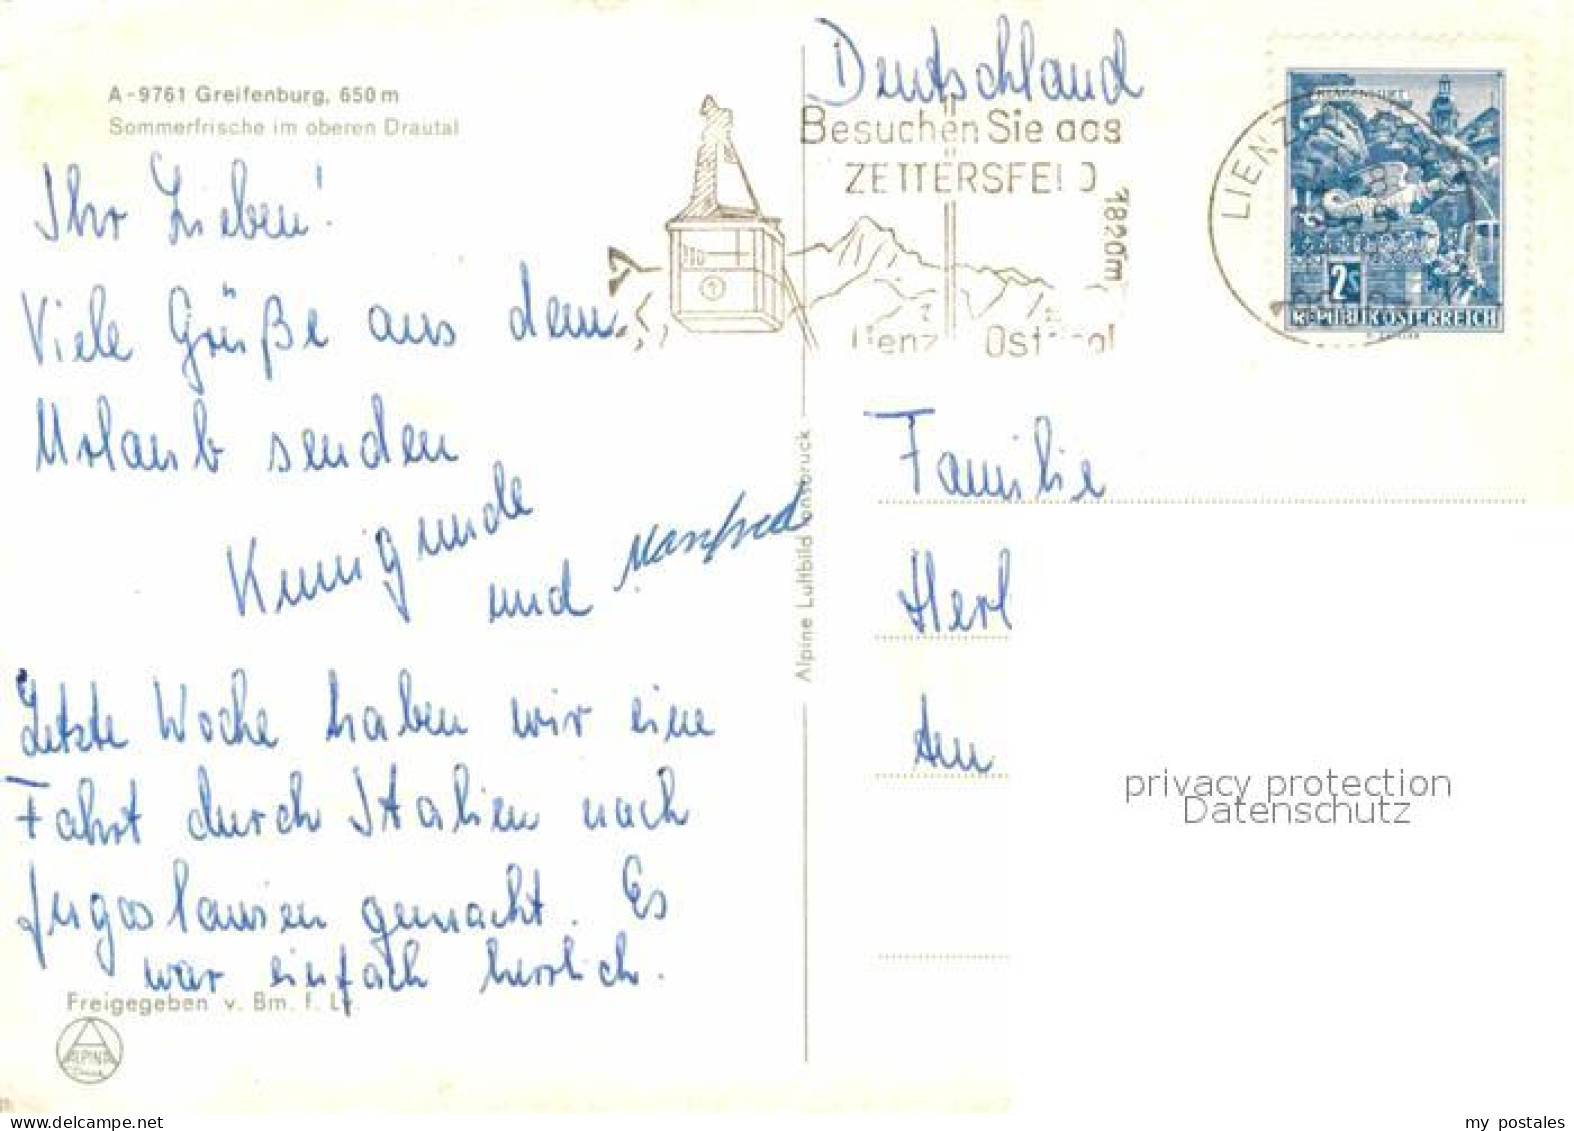 A-9761 Greifenburg, 650 m
Sommerfrische im oberen Drautal
Ihr Lieben!
Viele Grüße aus dem
Urlaub senden
Kunigunde
und Manfred
Letzte Woche haben wir eine
Fahrt durch Italien nach
Jugoslawien gemacht. Es
war einfach herrlich.
Freigegeben v. Bm. f. Lv.
ALPINE
Alpine Luftbild Innsbruck
Deutschland
Besuchen Sie das
ZETTERSFELD
1820m
Lienz Osttirol
LIENZ
KLAGENFURT
2S
REPUBLIK ÖSTERREICH
Familie
Herl
privacy protection
Datenschutz
my postales